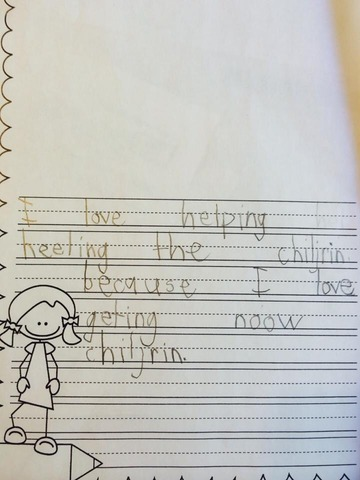 I love helping
heeting the chiljrin
because I love
geting noow
chiljrin.